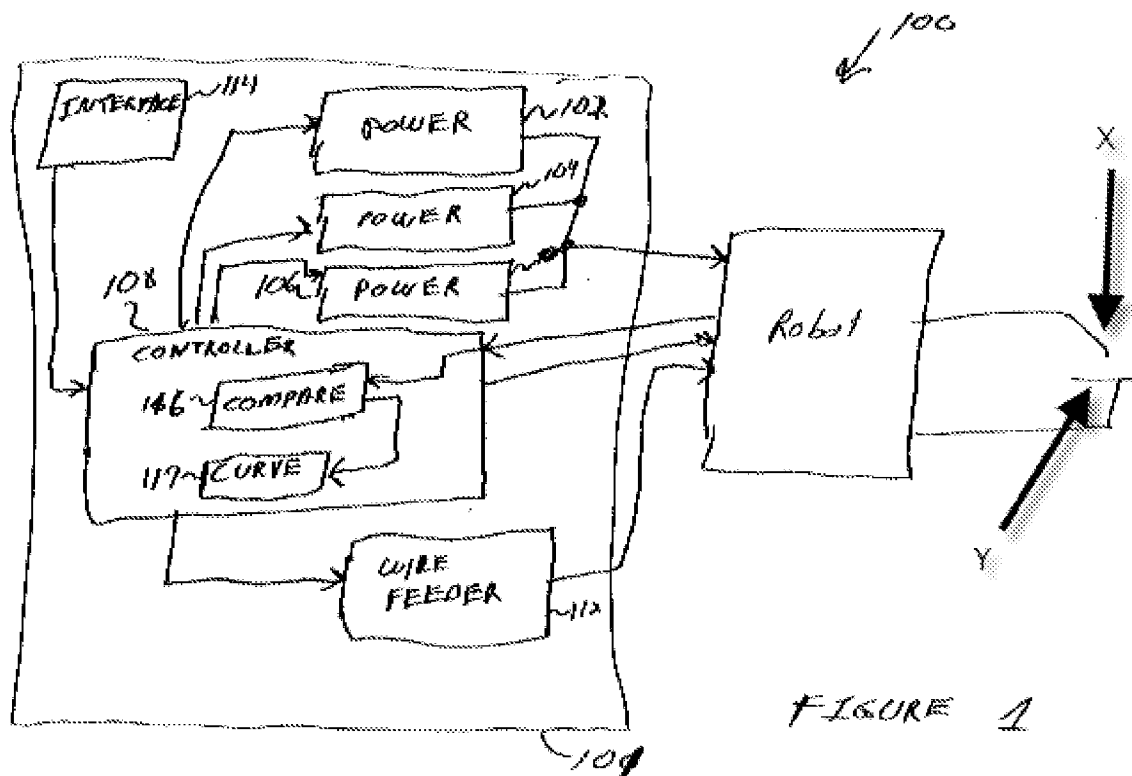 100
INTERFACE
114
POWER
102
POWER
104
106
POWER
108
CONTROLLER
COMPARE
CURVE
117
WIRE
FEEDER
112
Robot
X
Y
FIGURE 1